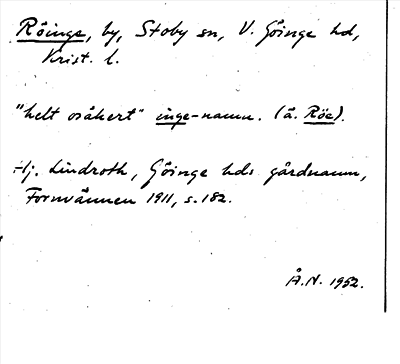 Röinge, by, Stoby sn, V. Göinge hd,
Krist. l.
"helt osäkert" inge-namn. (å. Röe).
Hj. Lindroth, Göinge hds gårdnamn,
Fornvännen 1911, s. 182.
Å.N. 1952.